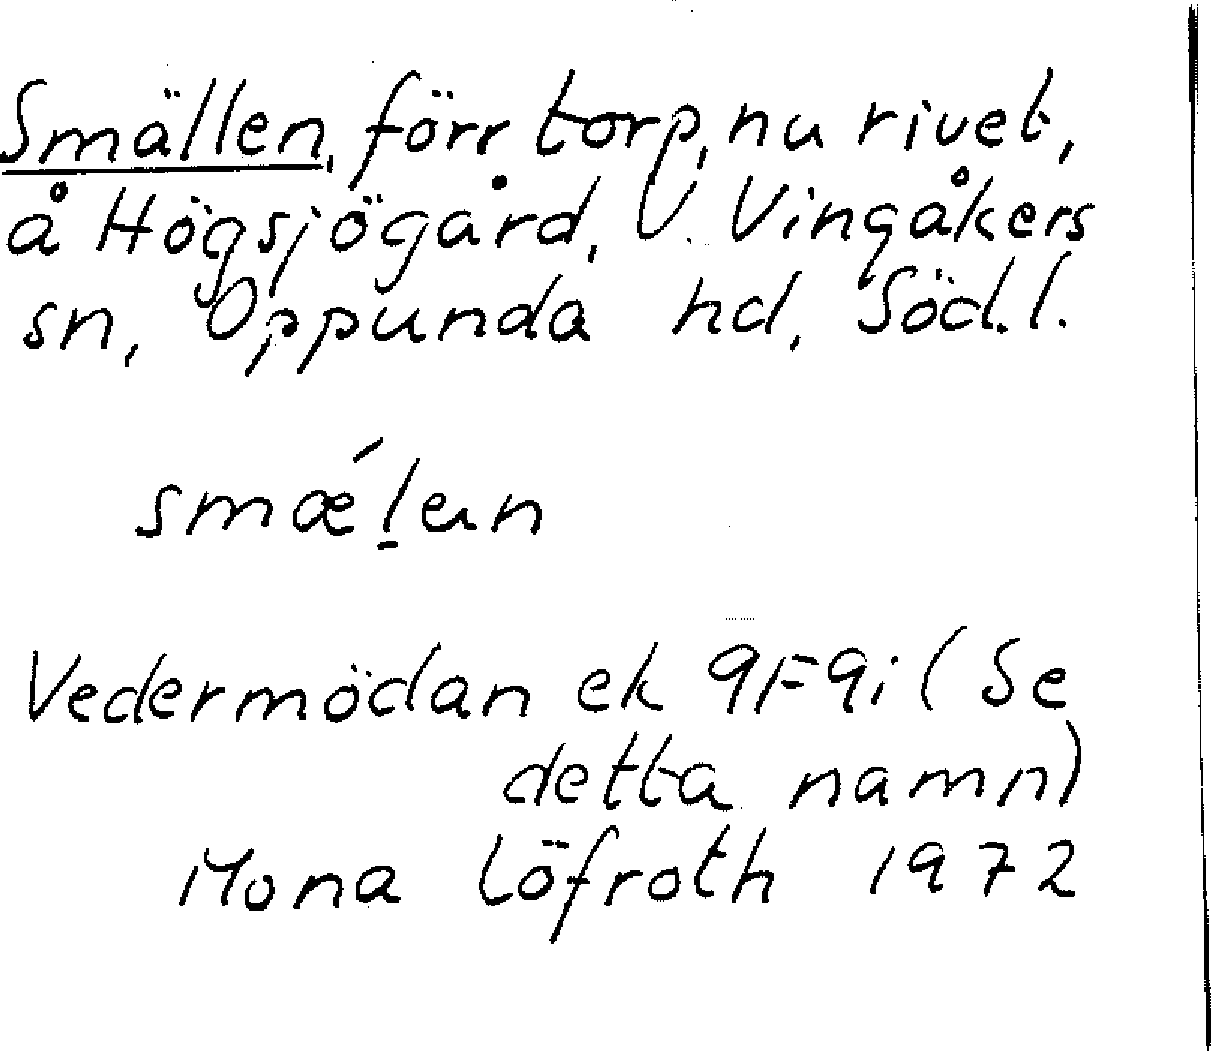 Smällen, förr torp, nu rivet,
å Högsjögård, V. Vingåkers
sn, Oppunda hd, Söd. l.
Vedermödan ek 9F9i (Se
detta namn)
Mona Löfroth 1972